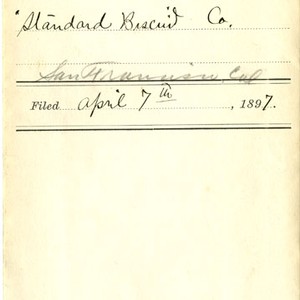 "Standard Biscuit Co.
San Francisco Cal
Filed April 7th, 1897.